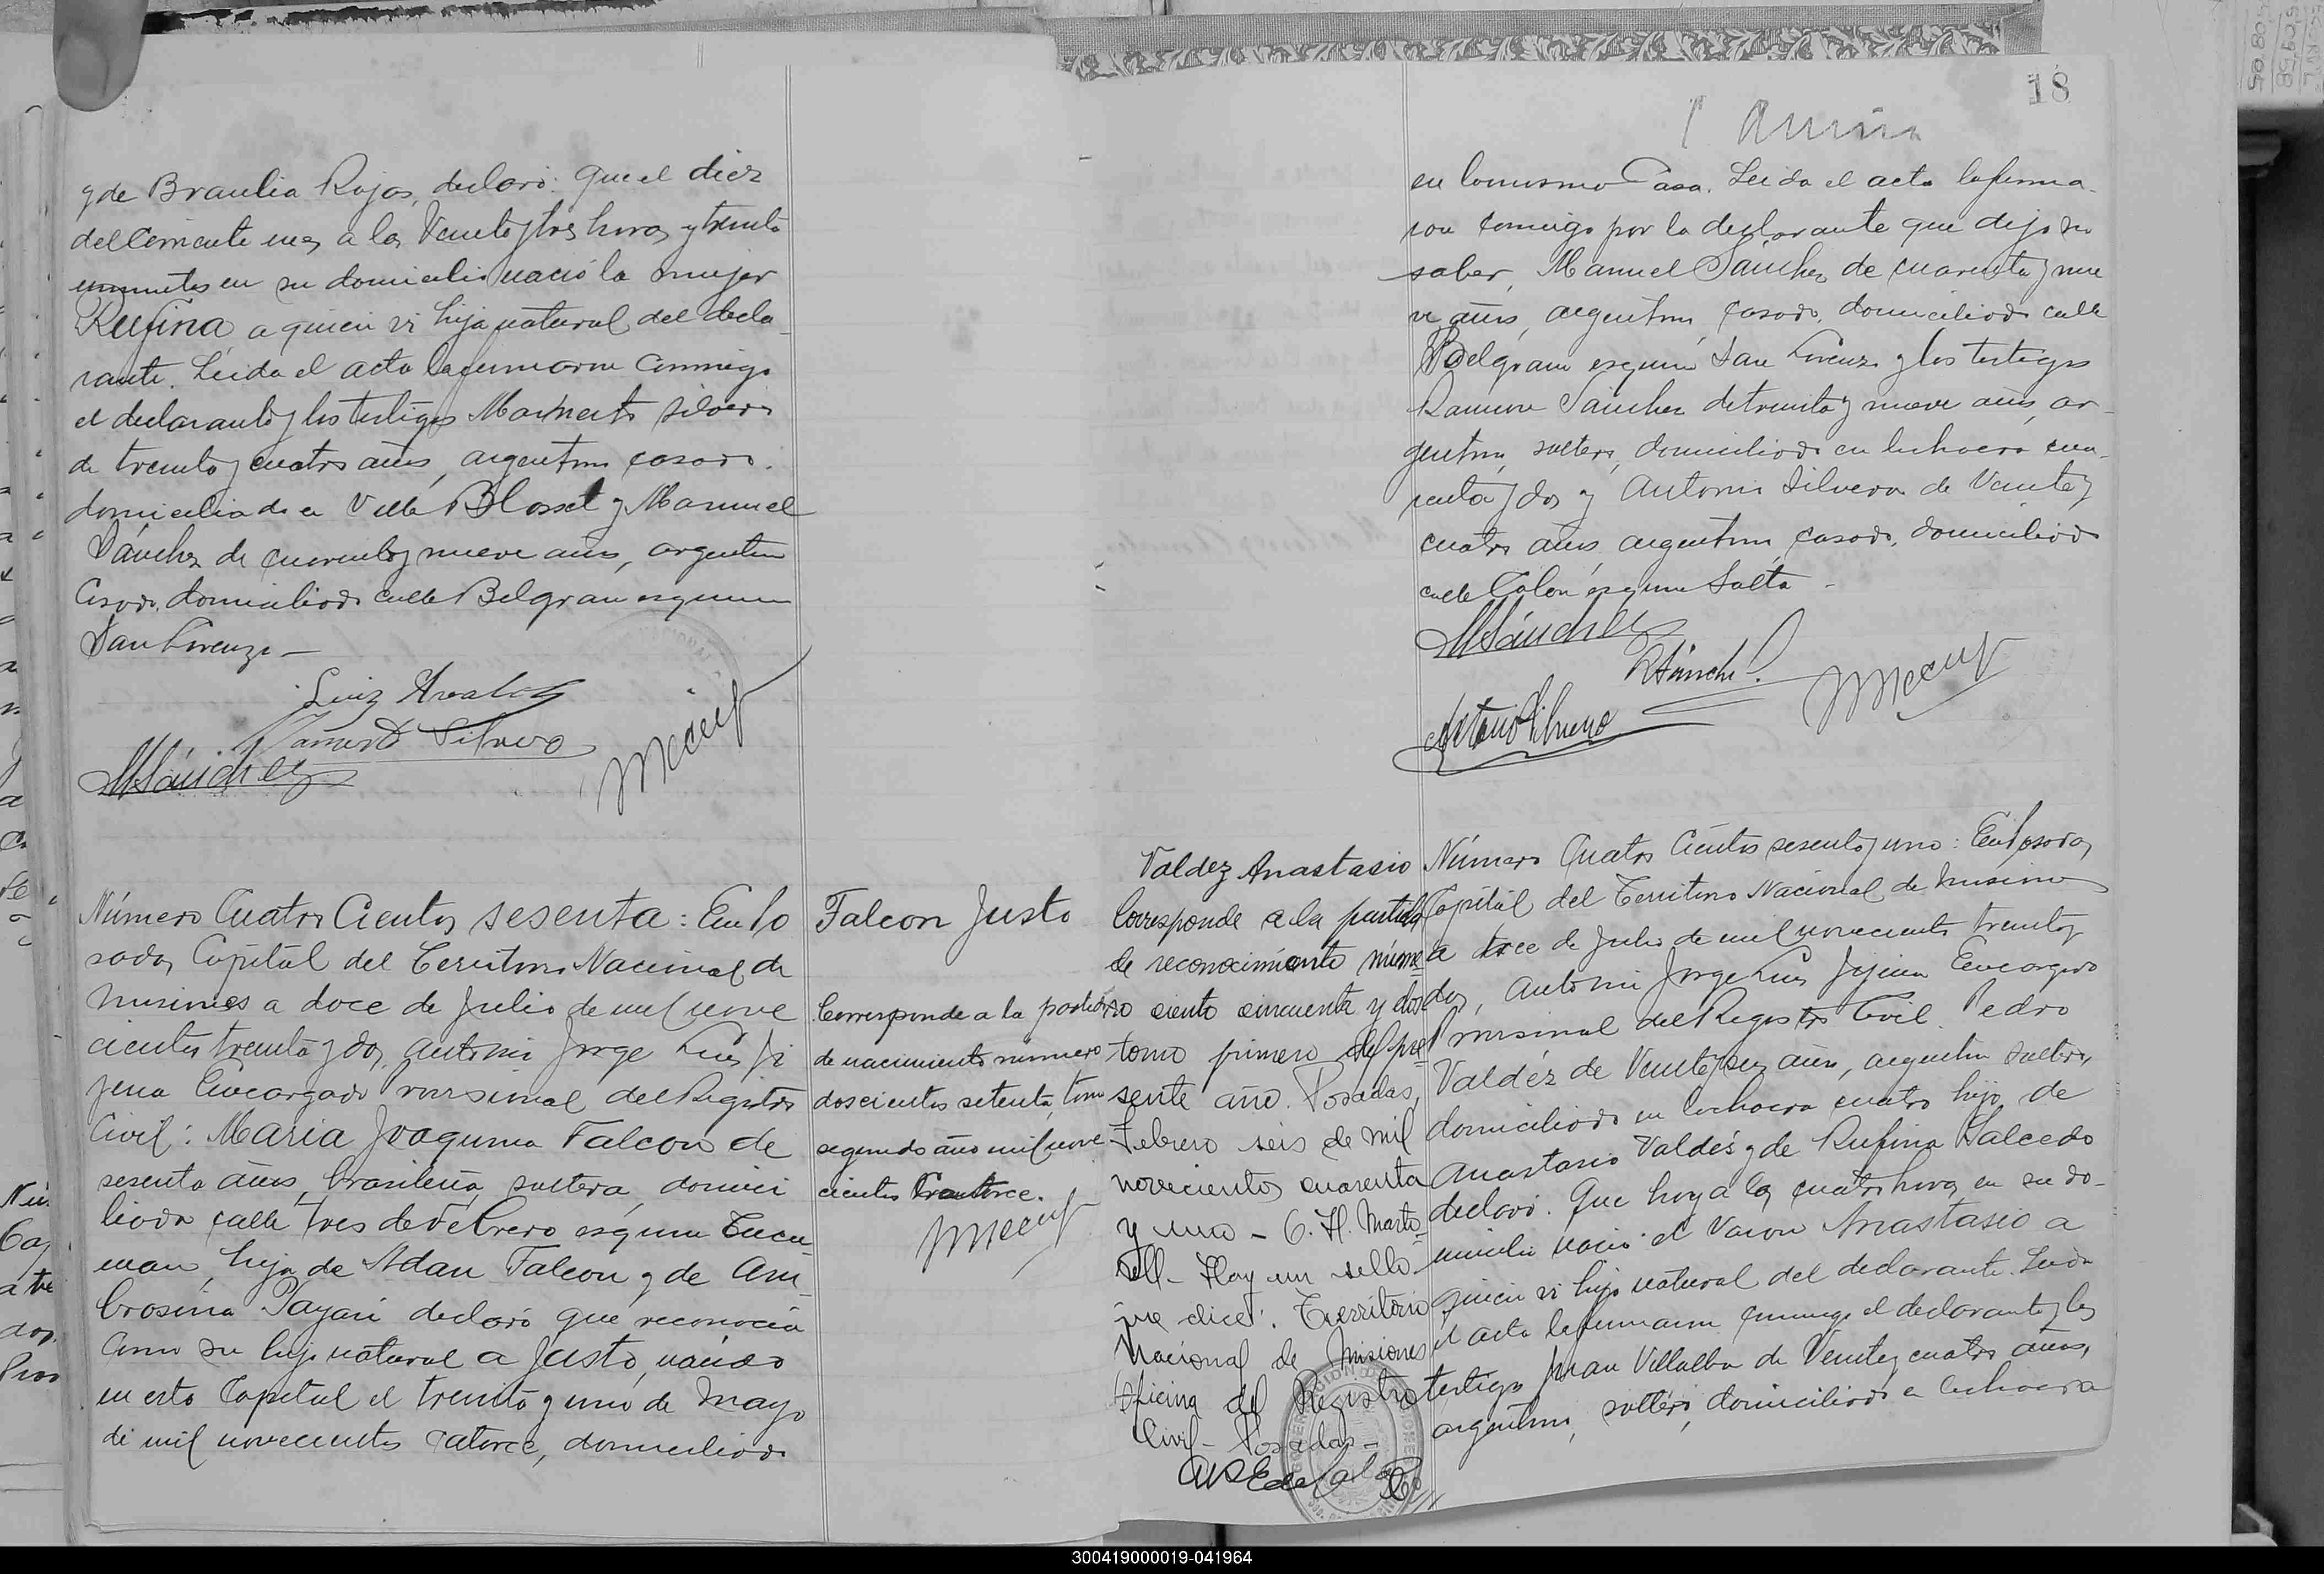 y de Braulia Rojas, declaró: Que el diez
del corriente mes a las Veinte y tres horas y treinta
minutos en su domicilio nació la mujer
Rufina a quien vi hija natural del decla-
rante. Leida el acta la firmaron conmigo
el declarante y los testigos Mamerto Silvero
de treinta y cuatro años, argentino casado.
domiciliado en Villa Blosset y Manuel
Sánchez de cuarenta y nueve años, argentino
Casado, domiciliado calle Belgrano esquina
San Lorenzo —
Luiz Avalos
Mamerto Silvero
MSánchez
Número Cuatro Cientos sesenta: En Po
sadas Capital del Territorio Nacional de
Misiones a doce de Julio de mil nove
cientos treinta y dos, Antonio Jorge Luis Ji
jena Encargado Provisional del Registro
Civil: Maria Joaquina Falcon de
sesenta años, brasileña, soltera, domici
liada calle Tres de Febrero esquina Tucu-
man, hija de Adan Falcon y de Am
brosina Payari declaró que reconocia
como su hijo natural a Justo, nacido
en esta Capital el treinta y uno de Mayo
de mil novecientos catorce, domiciliado
Falcon Justo
Corresponde a la partida
de nacimiento número
doscientos setenta, tomo
segundo año mil nove
cientos catorce.
18
en la misma Casa. Leida el acta la firma-
ron conmigo por la declarante que dijo no
saber, Manuel Sanchez de cuarenta y nue
ve años, argentino, casado, domiciliado calle
Belgrano esquina San Lorenzo y los testigos
Ramon Sanchez de treinta y nueve años, ar-
gentino, soltero, domiciliado en la chacra cua-
renta y dos y Antonio Silvero de Veinte y
cuatro años argentino, casado, domiciliado
calle Colon esquina Salta —
MSánchez
RSánchez
Antonio Silvero
Valdez Anastasio
Corresponde a la partida
de reconocimiento núme-
ro ciento cincuenta y dos
tomo primero del pre-
sente año. Posadas,
Febrero seis de mil
novecientos cuarenta
y uno — C. H. Marto-
rell — Hay un sello
que dice: Territorio
Nacional de Misiones
Oficina del Registro
Civil — Posadas —
Número Cuatro Cientos sesenta y uno: En Posadas,
Capital del Territorio Nacional de Misiones
a doce de Julio de mil novecientos treinta y
dos, Antonio Jorge Luis Jijena Encargado
Provisional del Registro Civil. Pedro
Valdéz de Veinte y seis años, argentino soltero,
domiciliado en la chacra cuatro hijo de
Anastasio Valdés y de Rufina Salcedo
declaró: Que hoy a las cuatro horas en su do-
micilio nació el Varon Anastasio a
quien vi hijo natural del declarante. Leida
el acta la firmaron conmigo el declarante y los
testigos Juan Villalba de Veinte y cuatro años,
argentino, soltero, domiciliado en la chacra
300419000019-041964